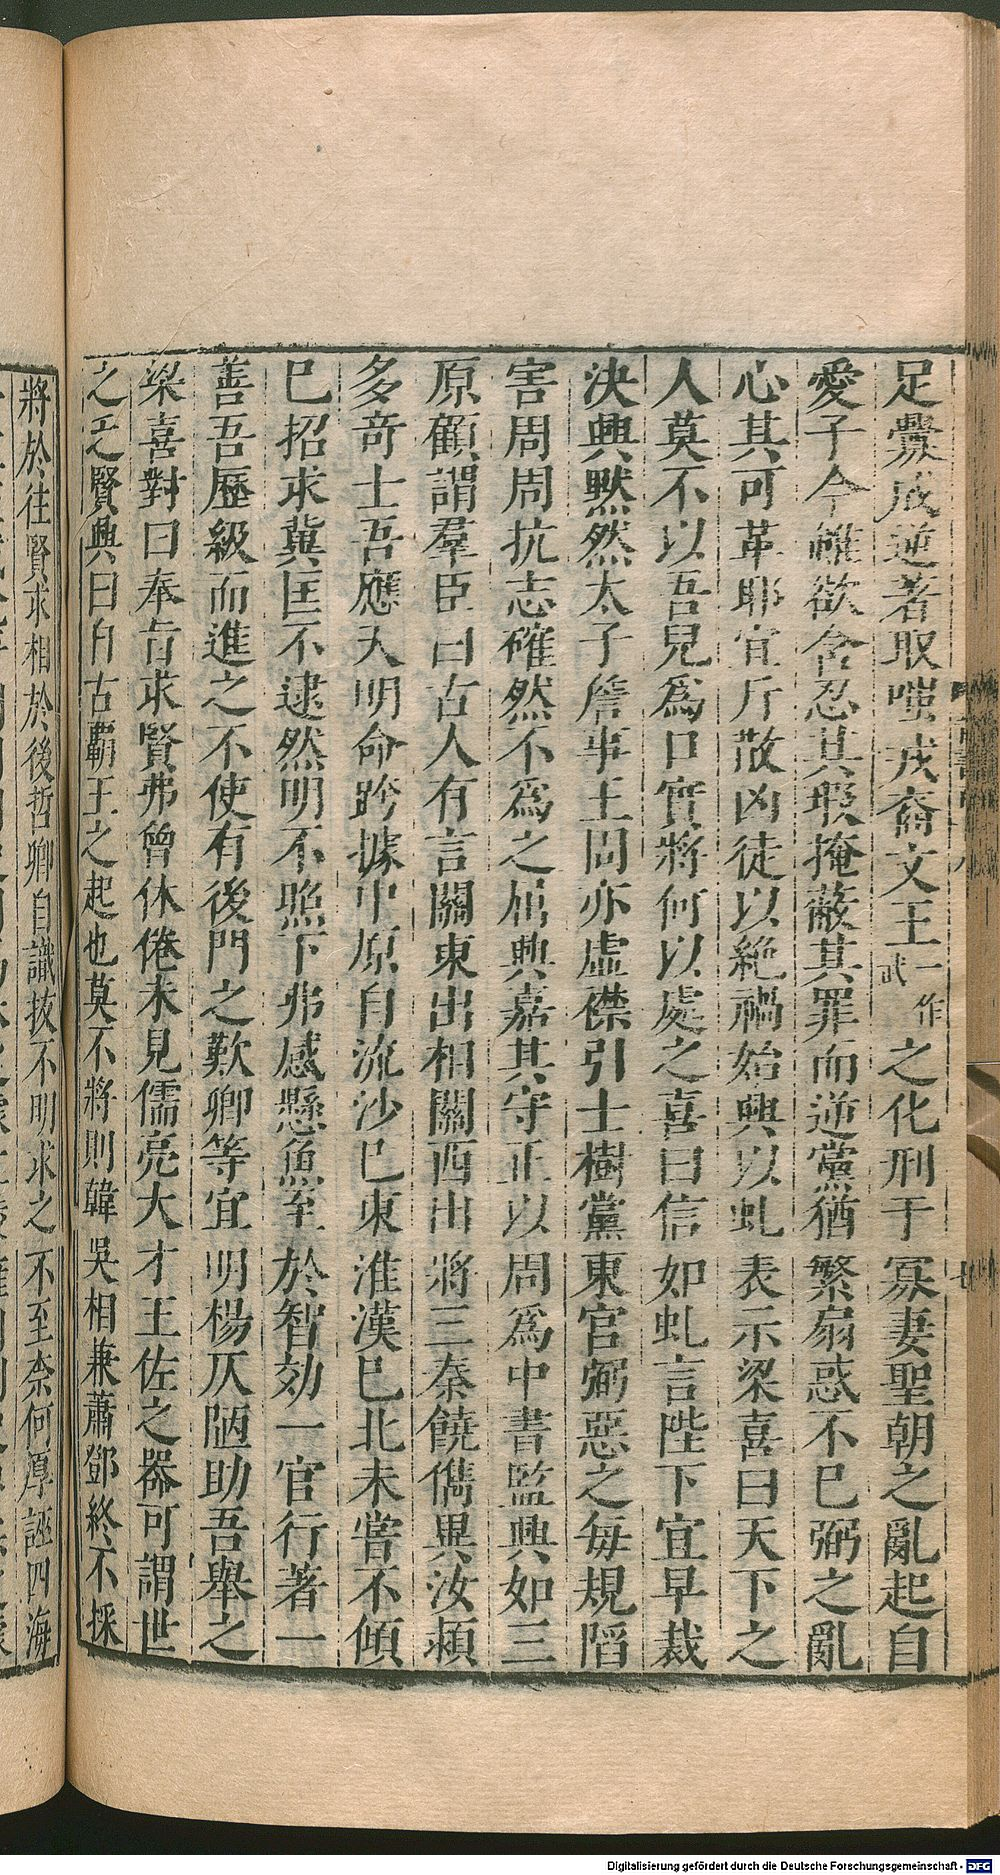 足釁成逆著取嗤戎裔文王一作武之化刑于寡妻聖朝之亂起自
愛子今雖欲含忍其瑕掩蔽其罪而逆黨猶繁扇惑不已弼之亂
心其可革耶宜斥散凶徒以絶禍始興以虬表示梁喜曰天下之
人莫不以吾兒為口實將何以處之喜曰信如虬言陛下宜早裁
決興黙然太子詹事王周亦虛襟引士樹黨東宮弼惡之每規陷
害周周抗志確然不為之屈興嘉其守正以周為中書監興如三
原顧謂羣臣曰古人有言關東出相關西出將三秦饒儁異汝潁
多奇士吾應天明命跨據中原自流沙已東淮漢已北未嘗不傾
已招求冀匡不逮然明不照下弗感懸魚至於智効一官行著一
善吾歷級而進之不使有後門之歎卿等宜明楊仄陋助吾舉之
梁喜對曰奉旨求賢弗曾休倦未見儒亮大才王佐之器可謂世
之乏賢興曰自古覇王之起也莫不將則韓吳相兼蕭鄧終不採
將於往賢求相於後哲卿自識拔不明求之不至奈何厚誣四海
Digitalisierung gefördert durch die Deutsche Forschungsgemeinschaft - DFG